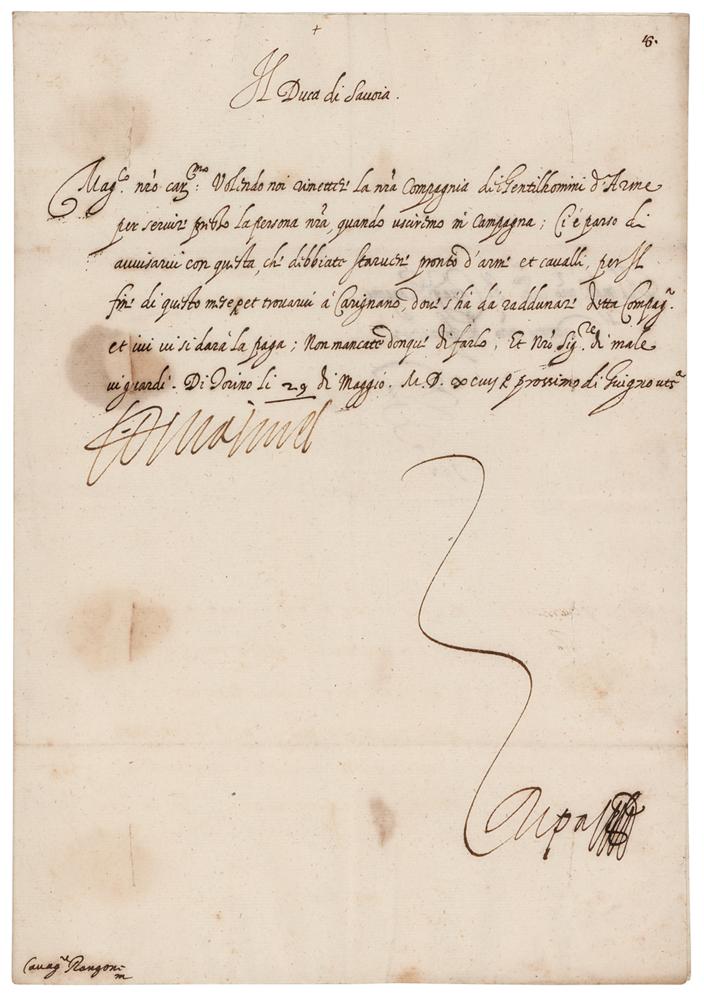 +
8.
Il Duca di Savoia.
Mag.co nr̃o car.mo: Volendo noi rimetter la nr̃a Compagnia di Gentilhomini d'Arme
per servir presso la persona nr̃a, quando usciremo in Campagna; Ci è parso di
avvisarvi con questa, che debbiate star pronto d'arme et cavalli, per Il
fine di questo mese et trovarvi à Carignano, dove s'ha dà raddunar detta Compag.a
et ivi vi si darà la paga; Non mancate donque di farlo, Et Nr̃o Sig.re di male
vi guardi. Di Torino li 29 di Maggio. M.D. xcvij prossimo di Giugno
Ripa
Cavag.re Rangoni